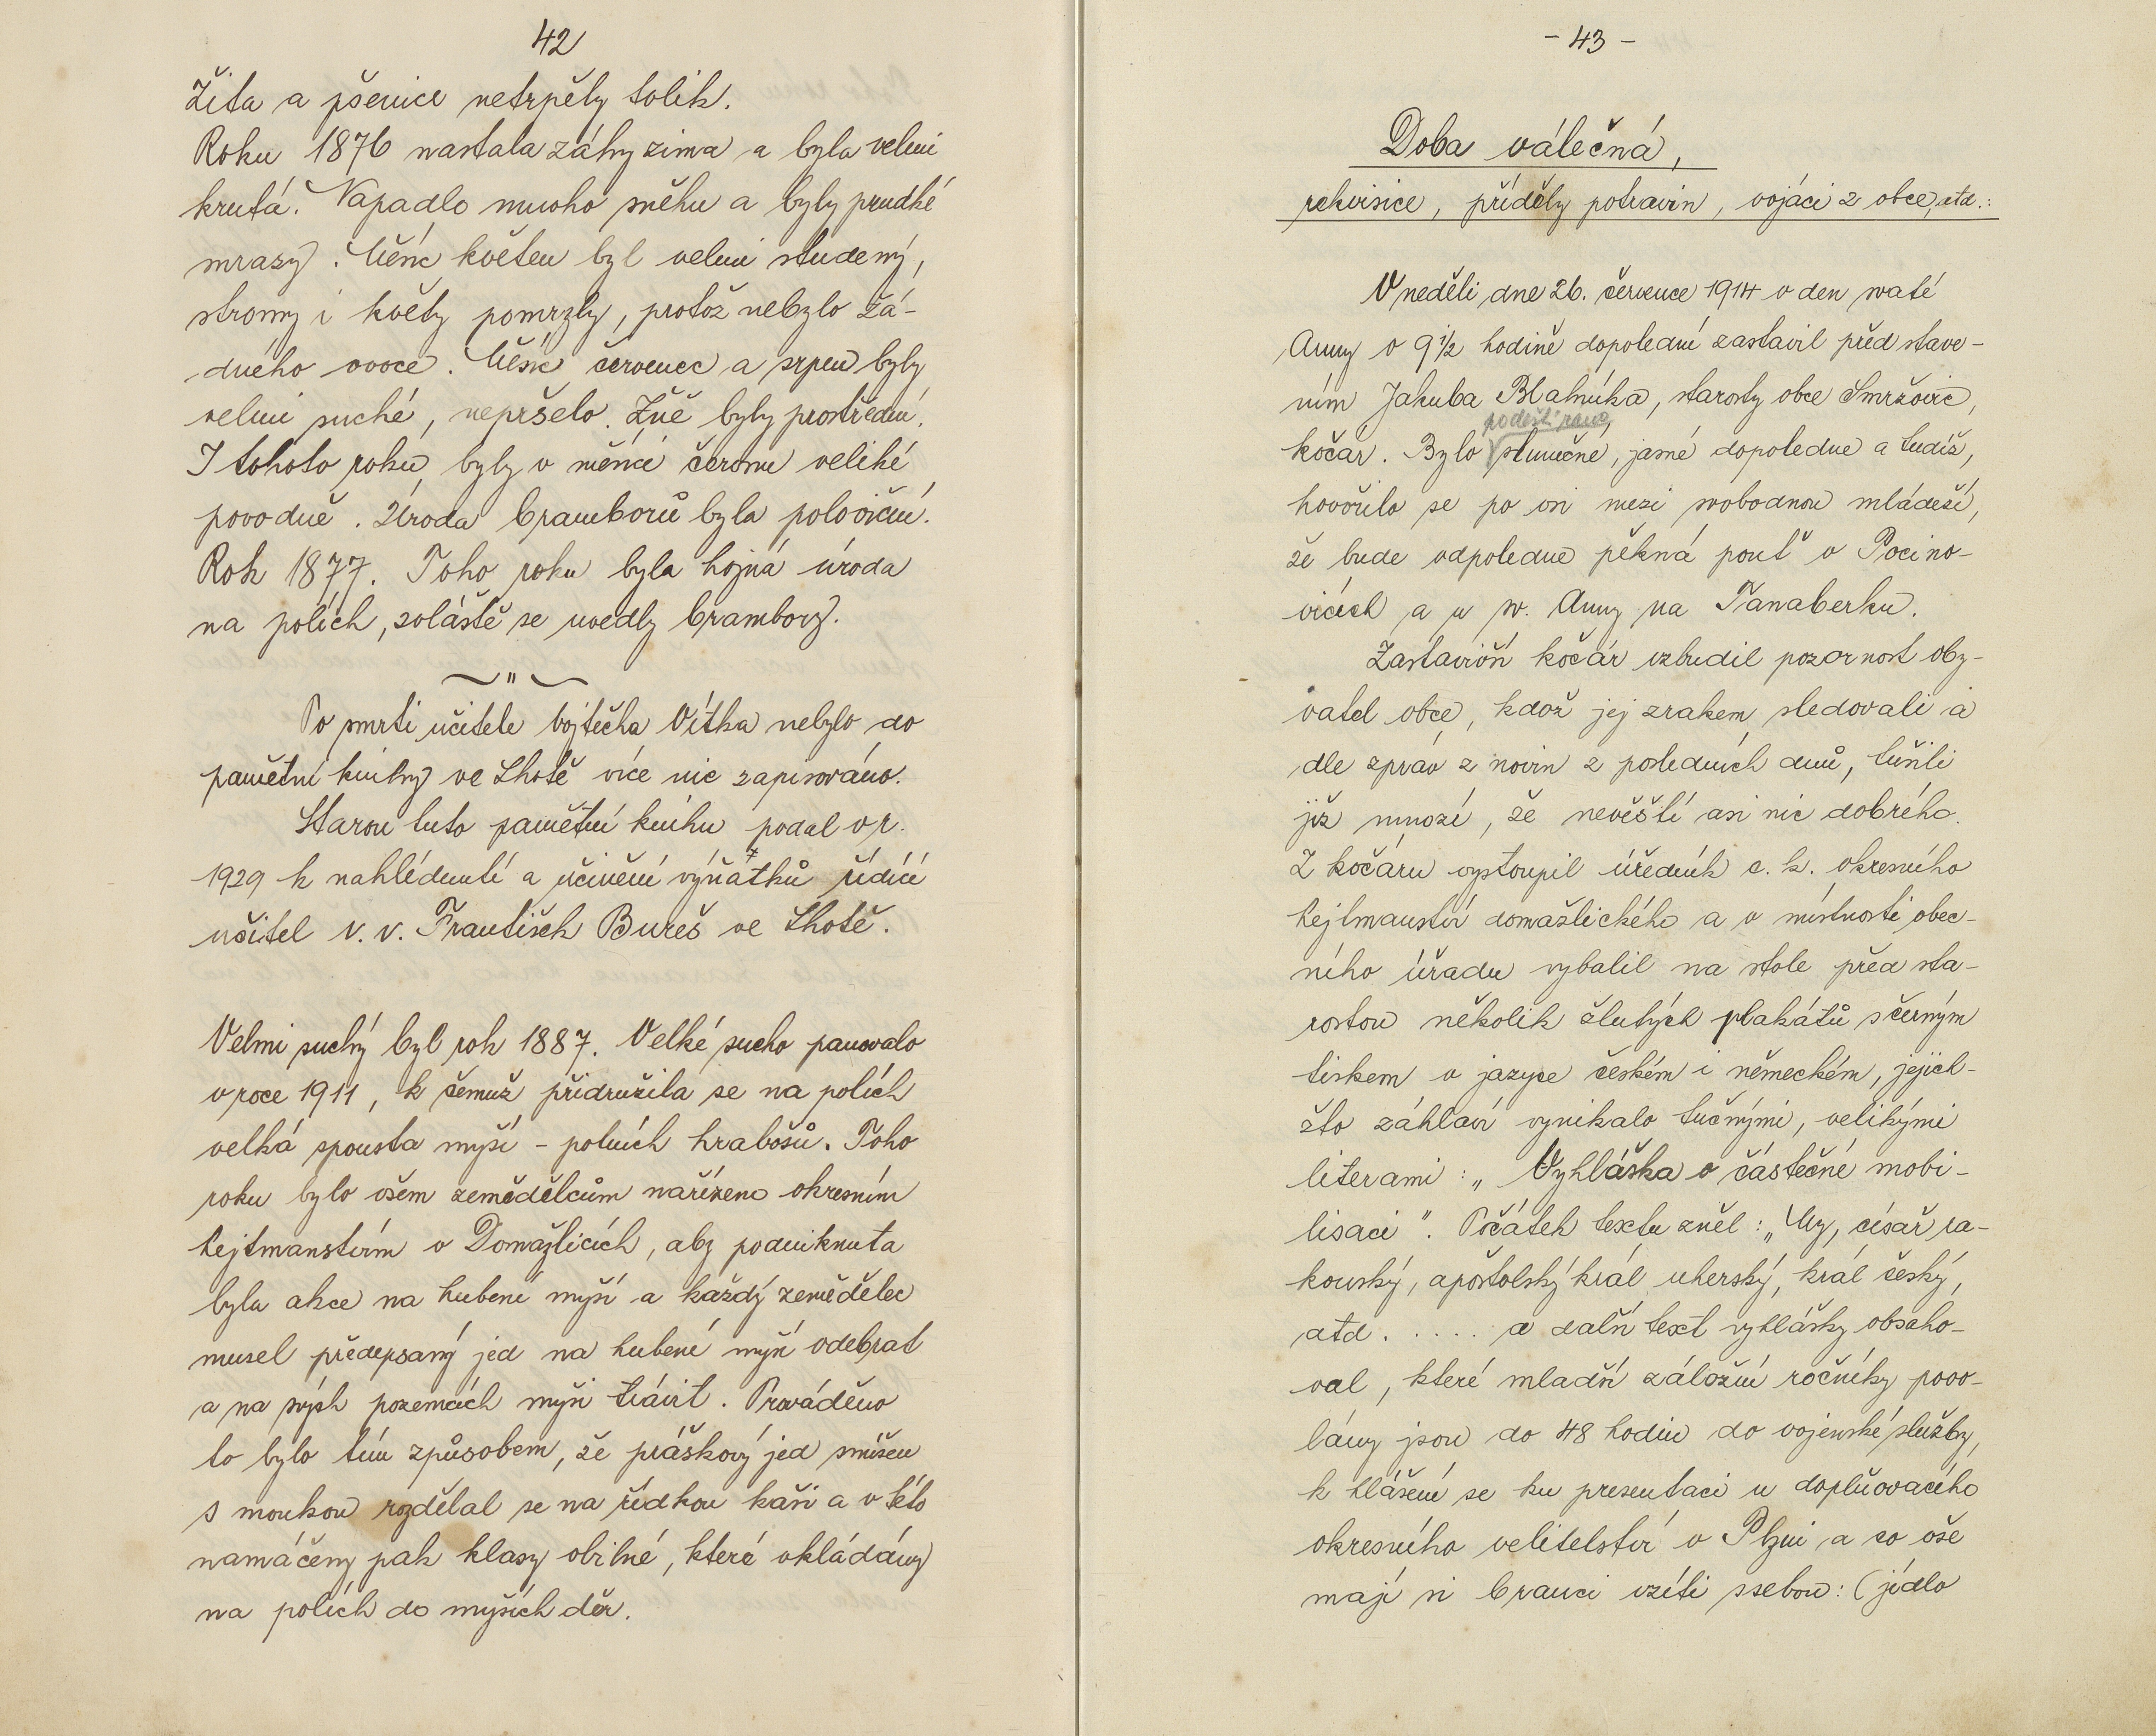 42
Žita a pšenice netrpěly tolik.
Roku 1876 nastala záhy zima a byla velmi
krutá. Napadlo mnoho sněhu a byly prudké
mrazy. Měsíc květen byl velmi studený,
stromy i květy pomrzly, protož nebylo žá-
dného ovoce. Měsíc červenec a srpen byly
velmi suché, nepršelo. Žně byly prostřední.
I tohoto roku, byly v měsíci červnu veliké
povodně. Úroda bramborů byla poloviční.
Rok 1877. Toho roku byla hojná úroda
na polích, zvláště se uvedly brambory.
Po smrti učitele Vojtěcha Vítka nebylo do
pamětní knihy ve Lhotě více nic zapisováno.
Starou tuto pamětní knihu podal v r.
1929 k nahlédnutí a učinění výňatků řídící
učitel v. v. František Bureš ve Lhotě.
Velmi suchý byl rok 1887. Velké sucho panovalo
v roce 1911, k čemuž přidružila se na polích
velká spousta myší - polních hrabošů. Toho
roku bylo všem zemědělcům nařízeno okresním
hejtmanstvím v Domažlicích, aby podniknuta
byla akce na hubení myší a každý zemědělec
musel předepsaný jed na hubení myší odebrat
a na svých pozemcích myši trávit. Prováděno
to bylo tím způsobem, že práškový jed smíšen
s moukou rozdělal se na řídkou kaši a v této
namáčeny pak klasy obilné, které vkládány
na polích do myších děr.
- 43 -
Doba válečná,
rekvisice, příděly potravin, vojáci z obce, atd.:
V neděli dne 26. července 1914 v den svaté
Anny v 9 1/2 hodině dopolední zastavil před stave-
ním Jakuba Blahníka, starosty obce Smržovic,
podešti ranu,
kočár. Bylo slunečné, jasné dopoledne a tudíž,
hovořilo se po vsi mezi svobodnou mládeží,
že bude odpoledne pěkná pouť v Pocino-
vicích a u sv. Anny na Tanaberku.
Zastavivší kočár vzbudil pozornost oby-
vatel obce, kdož jej zrakem sledovali a
dle zpráv z novin z posledních dnů, tušili
již mnozí, že nevěští asi nic dobrého.
Z kočáru vystoupil úředník c. k. okresního
hejtmanství domažlického a v místnosti obec-
ního úřadu vybalil na stole před sta-
rostou několik žlutých plakátů s černým
tiskem v jazyce českém i německém, jejich-
žto záhlaví vynikalo tučnými, velikými
literami: „Vyhláška o částečné mobi-
lisaci". Počátek textu zněl: „My, císař ra-
kouský, apoštolský král uherský, král český,
atd. . . . . . a další text vyhlášky obsaho-
val, které mladší záložní ročníky povo-
lány jsou do 48 hodin do vojenské služby,
k hlášení se ku presentaci u doplňovacího
okresního velitelství v Plzni a co vše
mají si branci vzíti ssebou: (jídlo